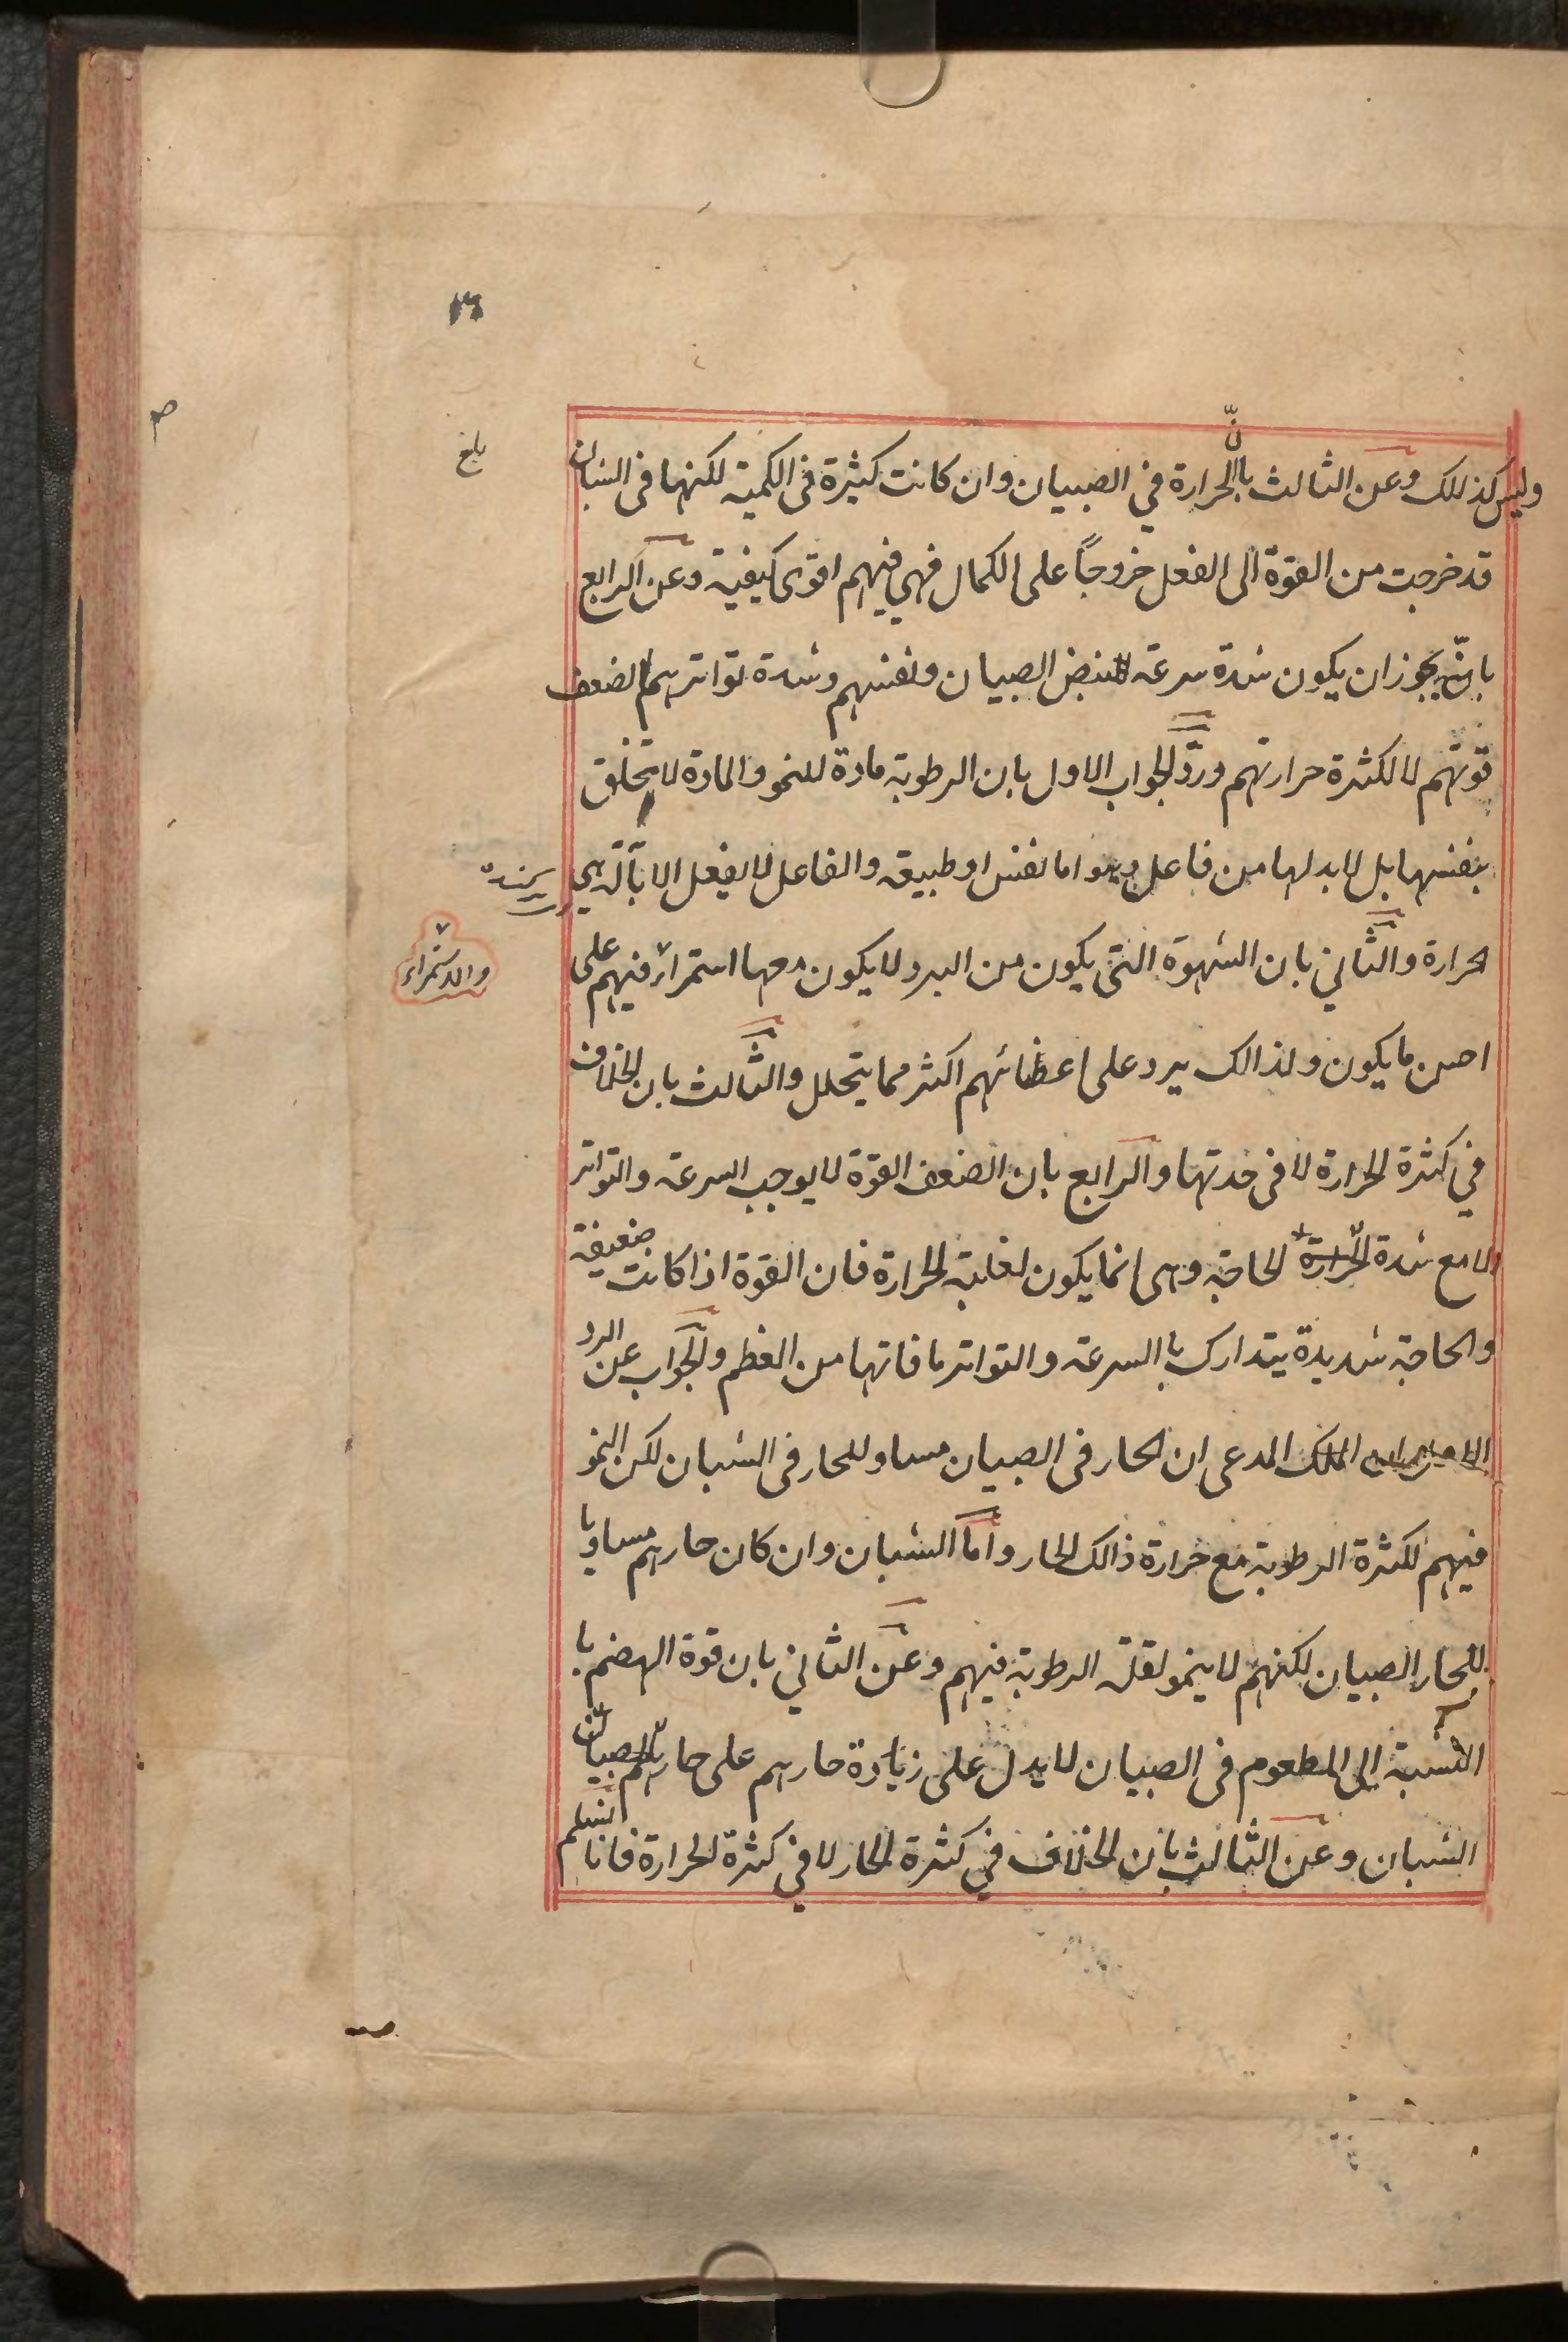 ١٦
بلغ
وليس كذلك وعن الثالث بانّ الحرارة في الصبيان وان كانت كثيرة فى الكمية لكنها فى الشبان
قد خرجت من القوة الى الفعل خروجاً على الكمال فهي فيهم اقوى كيفية وعن الرابع
بانّه يجوز ان يكون شدة سرعة نبض الصبيان ونفسهم وشدة تواترهما لضعف
قوتهم لا لكثرة حرارتهم وردّ الجواب الاول بان الرطوبة مادة للنمو والمادة لا تتخلق
بنفسها بل لابد لها من فاعل وهو اما نفس او طبيعة والفاعل لا يفعل الا بآلة هي
الحرارة والثاني بان الشهوة التى يكون من البرد لا يكون معها استمراء فيهم على
والاستمراء
احسن ما يكون ولذالك يرد على اعضائهم اكثر مما يتحلل والثالث بان الخلاف
في كثرة الحرارة لا فى حدتها والرابع بان الضعف القوة لا يوجب السرعة والتواتر
الا مع شدة الحاجة وهى انما يكون لغلبة الحرارة فان القوة اذا كانت ضعيفة
والحاجة شديدة يتدارك بالسرعة والتواتر ما فاتها من العظم والجواب عن الرد
المدعى ان الحار فى الصبيان مساو للحار فى الشبان لكن النمو
فيهم لكثرة الرطوبة مع حرارة ذالك الحار واما الشبان وان كان حارهم مساويا
للحار الصبيان لكنهم لا ينمو لقلة الرطوبة فيهم وعن الثاني بان قوة الهضم با
النسبة الى المطعوم فى الصبيان لا يدل على زيادة حارهم على حار
الشبان وعن الثالث بان الخلاف في كثرة الحار لا في كثرة الحرارة فانا نسلم